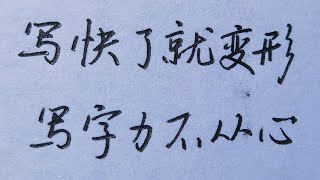 写快了就变形
写字力不从心